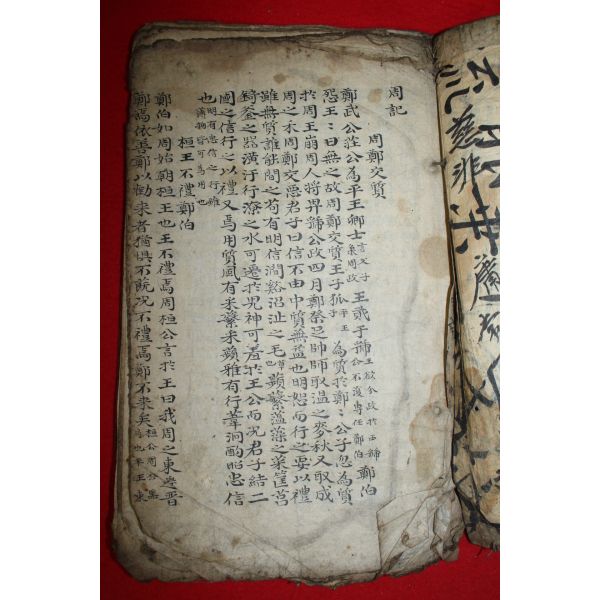 周記
周鄭交質
鄭武公莊公為平王卿士言父子秉周政王貳于虢王欲分政於西虢公不復專任鄭伯鄭伯
怨王〻曰無之故周鄭交質王子狐平王子為質於鄭〻公子忽為質
於周王崩周人將畀虢公政四月鄭祭足帥師取溫之麥秋又取成
周之禾周鄭交惡君子曰信不由中質無益也明恕而行之要以禮
雖無質誰能間之苟有明信澗谿沼沚之毛草也蘋蘩薀藻之菜筐筥
錡釜之器潢汙行潦之水可薦於鬼神可羞於王公而況君子結二
國之信行之以禮又焉用質風有采蘩采蘋雅有行葦泂酌昭忠信
也明有忠信之行雖薄物皆可為用也
桓王不禮鄭伯
鄭伯如周始朝桓王也王不禮焉周桓公言於王曰我周之東遷晉
鄭焉依善鄭以勸來者猶懼不蔇况不禮焉鄭不來矣桓公周公黑肩也平王東